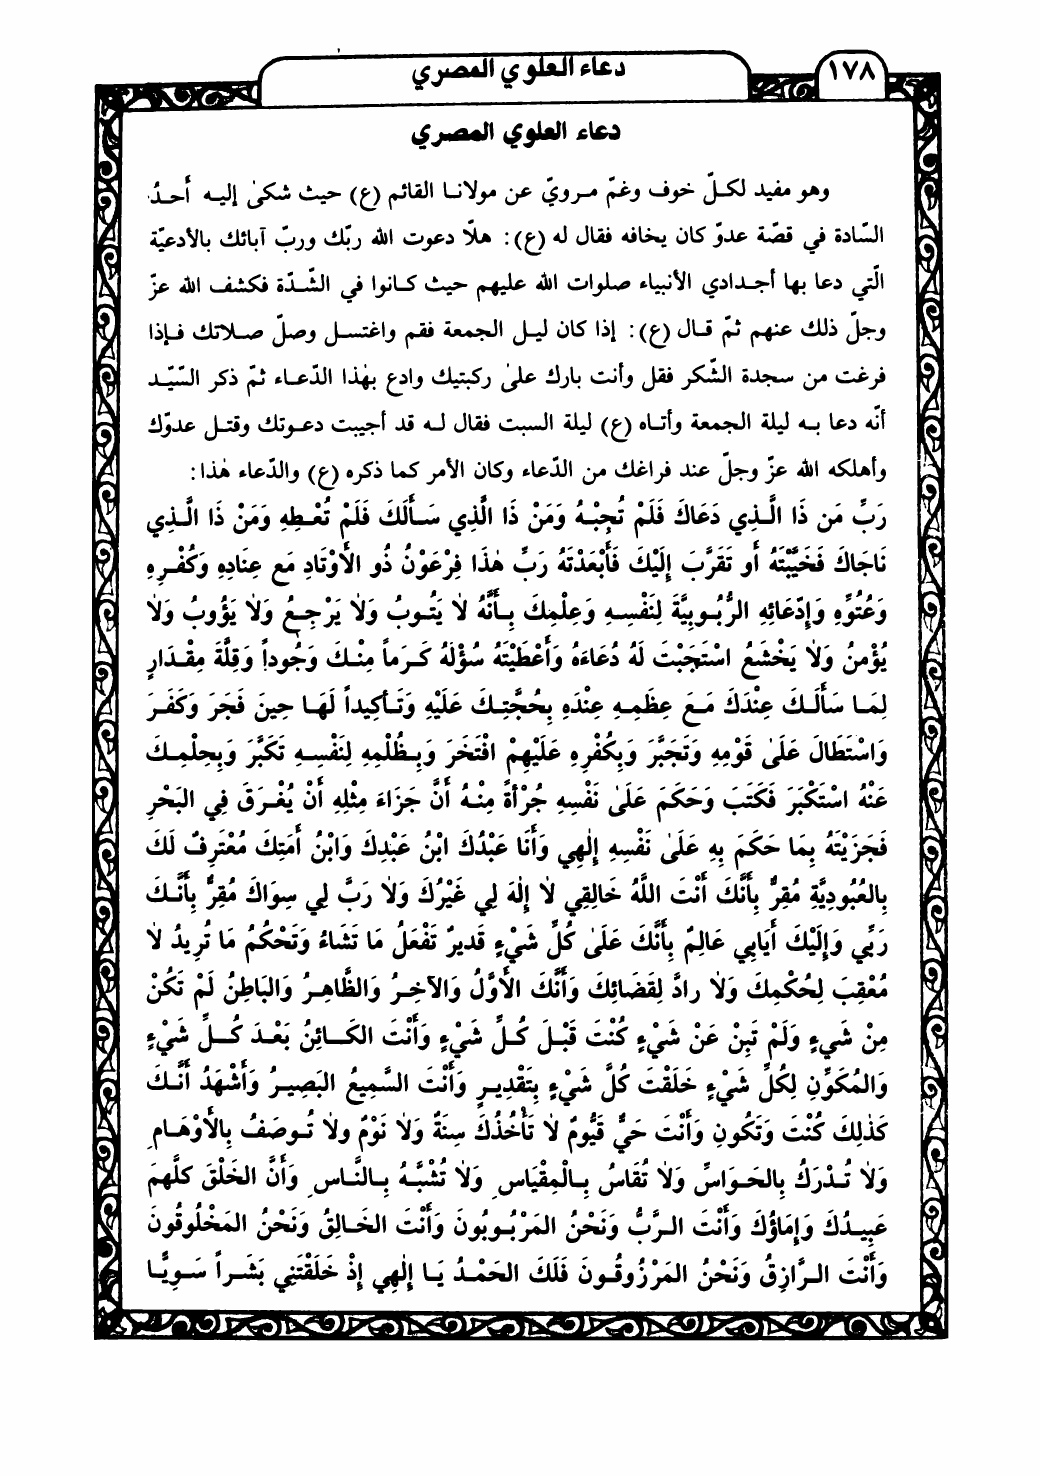 ١٧٨
دعاء العلوي المصري
دعاء العلوي المصري
وهو مفيد لكلّ خوف وغمّ مرويّ عن مولانا القائم (ع) حيث شكىٰ إليه أحدُ
السّادة في قصّة عدوّ كان يخافه فقال له (ع): هلّا دعوت الله ربّك وربّ آبائك بالأدعيّة
الّتي دعا بها أجدادي الأنبياء صلوات الله عليهم حيث كانوا في الشّدّة فكشف الله عزّ
وجلّ ذلك عنهم ثمّ قال (ع): إذا كان ليل الجمعة فقم واغتسل وصلّ صلاتك فإذا
فرغت من سجدة الشّكر فقل وأنت بارك علىٰ ركبتيك وادع بهٰذا الدّعاء ثمّ ذكر السّيّد
أنّه دعا به ليلة الجمعة وأتاه (ع) ليلة السبت فقال له قد أجيبت دعوتك وقتل عدوّك
وأهلكه الله عزّ وجلّ عند فراغك من الدّعاء وكان الأمر كما ذكره (ع) والدّعاء هٰذا:
رَبِّ مَن ذَا الَّذِي دَعَاكَ فَلَمْ تُجِبْهُ وَمَنْ ذَا الَّذِي سَأَلَكَ فَلَمْ تُعْطِهِ وَمَنْ ذَا الَّذِي
نَاجَاكَ فَخَيَّبْتَهُ أو تَقَرَّبَ إلَيْكَ فَأَبْعَدْتَهُ رَبِّ هٰذَا فِرْعَوْنُ ذُو الأوْتَادِ مَع عِنَادِهِ وَكُفْرِهِ
وَعُتُوِّهِ وَإِدّعَائِهِ الرُّبُوبِيَّةَ لِنَفْسِهِ وَعِلْمِكَ بِأَنَّهُ لا يَتُوبُ وَلاٰ يَرْجِعُ وَلاٰ يَؤُوبُ وَلاٰ
يُؤْمنُ وَلاٰ يَخْشَعُ اسْتَجَبْتَ لَهُ دُعَاءَهُ وَأَعْطَيْتَهُ سُؤْلَهُ كَرَماً مِنْكَ وَجُوداً وَقِلَّةَ مِقْدَارٍ
لِمَا سَأَلَكَ عِنْدَكَ مَعَ عِظَمِهِ عِنْدَهِ بِحُجَّتِكَ عَلَيْهِ وَتَأكِيداً لَهَا حِينَ فَجَرَ وَكَفَرَ
وَاسْتَطَالَ عَلَىٰ قَوْمِهِ وَتَجَبَّرَ وَبِكُفْرِهِ عَلَيْهِمْ افْتَخَرَ وَبِظُلْمِهِ لِنَفْسِهِ تَكَبَّرَ وَبِحِلْمِكَ
عَنْهُ اسْتَكْبَرَ فَكَتَبَ وَحَكَمَ عَلَىٰ نَفْسِهِ جُرْأةً مِنْهُ أَنَّ جَزَاءَ مِثْلِهِ أنْ يُغْرَقَ فِي البَحْرِ
فَجَزَيْتَهُ بِمَا حَكَمَ بِهِ عَلَىٰ نَفْسِهِ إلٰهِي وَأَنَا عَبْدُكَ ابْنُ عَبْدِكَ وَابْنُ أمَتِكَ مُعْتَرِفٌ لَكَ
بِالعُبُودِيَّةِ مُقِرٌّ بِأَنَّكَ أَنْتَ اللَّهُ خَالِقِي لاٰ إلٰهَ لِي غَيْرُكَ وَلاٰ رَبَّ لِي سِوَاكَ مُقِرٌّ بِأَنَّكَ
رَبِّي وَإلَيْكَ أيَابِي عَالِمٌ بِأَنَّكَ عَلَىٰ كُلِّ شَيْءٍ قَديرٌ تَفْعَلُ مَا تَشَاءُ وَتَحْكُمُ مَا تُرِيدُ لاٰ
مُعْقِبَ لِحُكْمِكَ وَلاٰ رادَّ لِقَضَائِكَ وَأَنَّكَ الأوَّلُ وَالآخِرُ وَالظَّاهِرُ وَالبَاطِنُ لَمْ تَكُنْ
مِنْ شَيءٍ وَلَمْ تَبِنْ عَنْ شَيْءٍ كُنْتَ قَبْلَ كُلِّ شَيْءٍ وَأنْتَ الكَائِنُ بَعْدَ كُلِّ شَيْءٍ
وَالمُكَوِّنِ لِكُلِّ شَيْءٍ خَلَقْتَ كُلَّ شَيْءٍ بِتَقْدِيرٍ وَأَنْتَ السَّمِيعُ البَصِيرُ وَأَشْهَدُ أنَّكَ
كَذٰلِكَ كُنْتَ وَتَكُونِ وَأَنْتَ حَيٌّ قَيُّومٌ لاٰ تَأْخُذُكَ سِنَةٌ وَلاٰ نَوْمٌ ولاٰ تُوصَفُ بِالأَوْهَامِ
وَلاٰ تُدْرَكُ بِالحَوَاسِّ وَلاٰ تُقَاسُ بِالْمِقْيَاسِ وَلاٰ تُشْبَّهُ بِالنَّاسِ وَأنَّ الخَلْقَ كلَّهمَ
عَبِيدُكَ وَإمَاؤُكَ وَأَنْتَ الرَّبُّ وَنَحْنُ المَرْبُوبُونَ وَأَنْتَ الخَالِقُ وَنَحْنُ المَخْلُوقُونَ
وَأَنْتَ الرَّازِقُ وَنَحْنُ المَرْزُوقُونَ فَلَكَ الحَمْدُ يَا إلٰهِي إذْ خَلَقْتَنِي بَشَراً سَوِيَّا